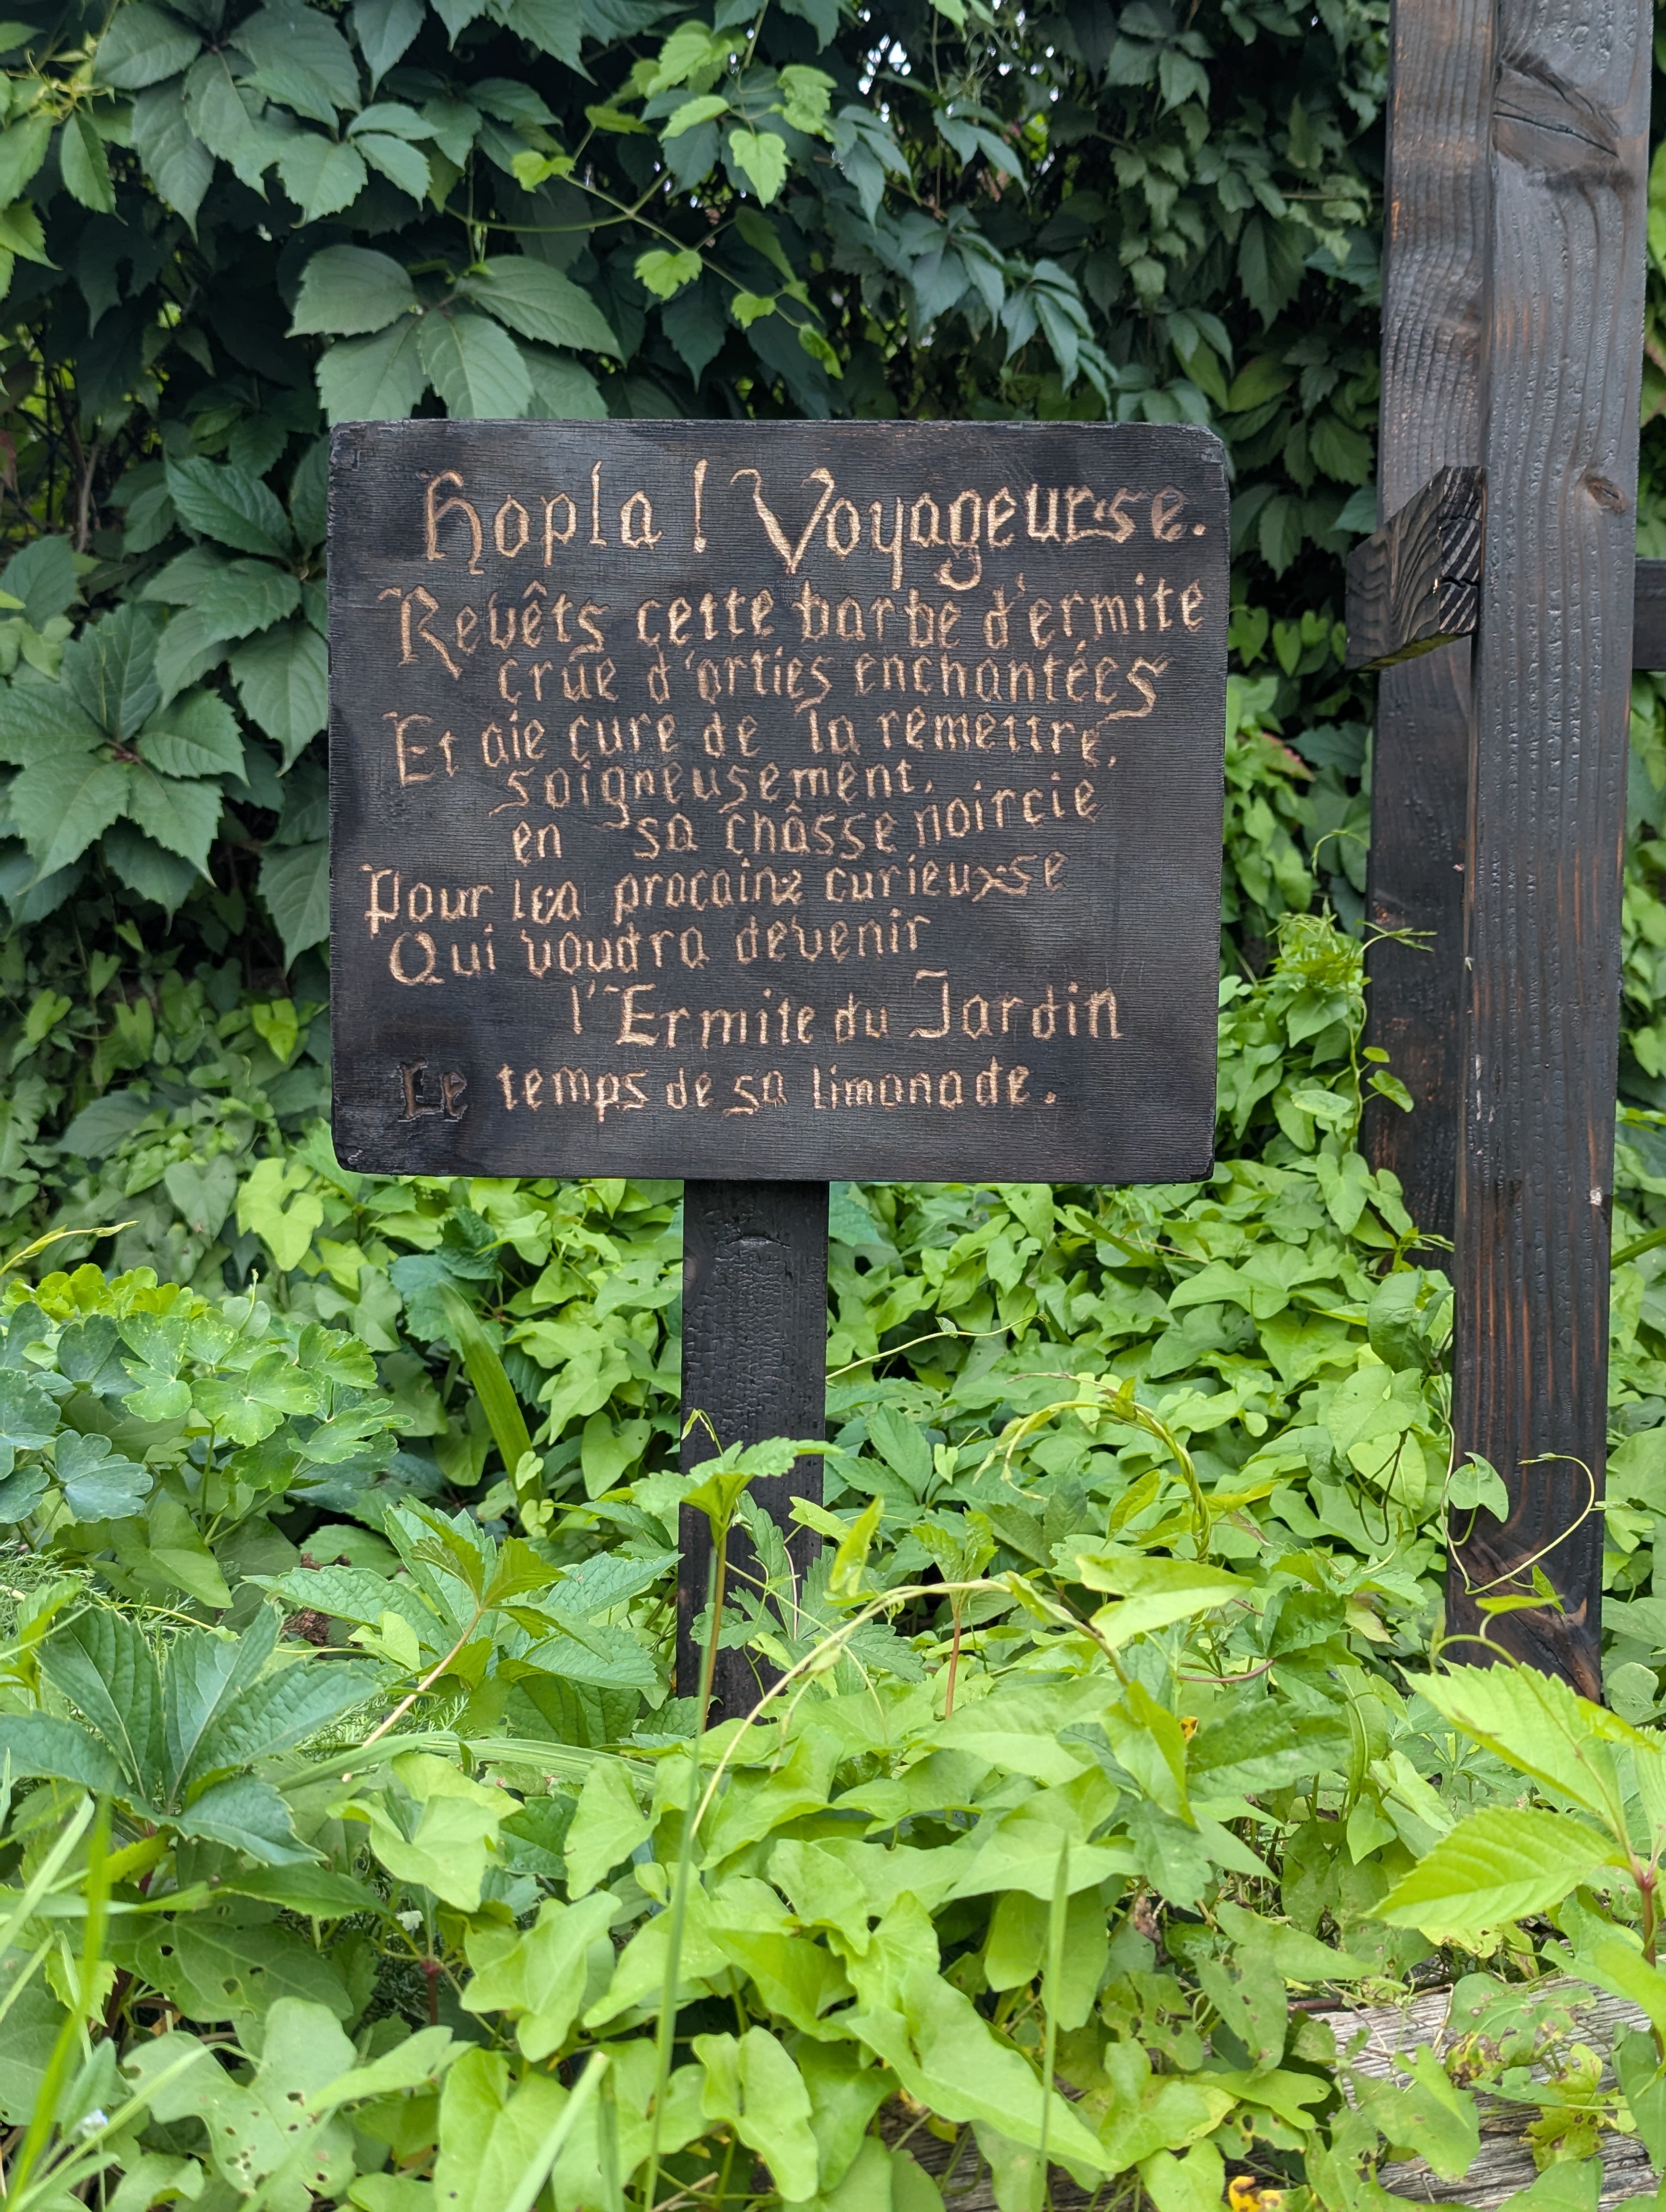 Hopla ! Voyageur·se.
Revêts cette barbe d'ermite
crue d'orties enchantées
Et aie cure de la remettre,
soigneusement,
en sa châsse noircie
Pour lea procaine curieuxse
Qui voudra devenir
l'Ermite du Jardin
Le temps de sa limonade.